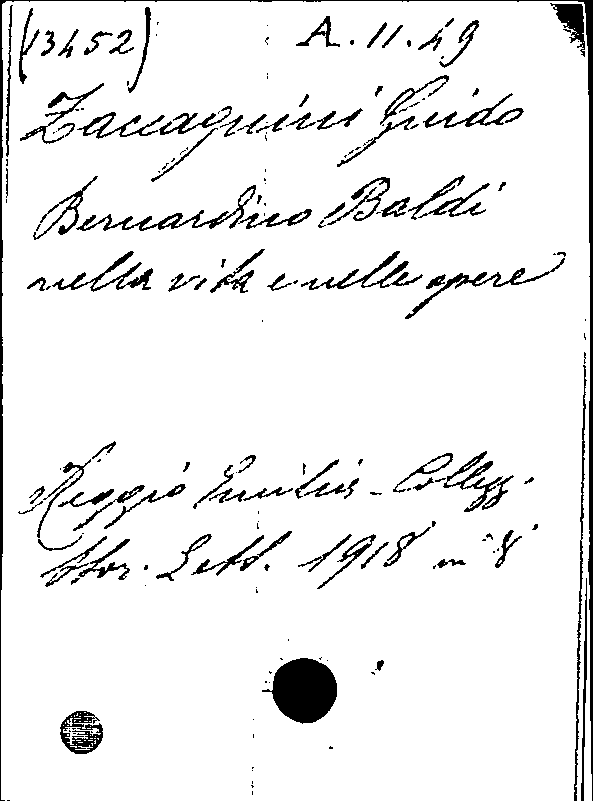 (13452) A. 11. 49
Zaccagnini Guido
Bernardino Baldi
nella vita e nelle opere
Reggio Emilia - Collez.
Stor. Lett. 1918 in 8°